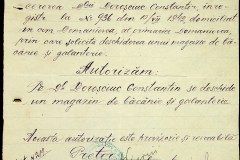 Cererea Dlui Dorosciuc Constantin, înre-
gistrată la № 936 din 1942 domiciliat
în com. Romanăuca, al primăriei Romanăuca,
prin care solicită deschiderea unui magazin de bă-
cănie și galanterie.
Autorizăm:
Pe Dl Doroscuic Constantin se deschide
un magazin de băcănie și galanterie
Această autorizație este provizorie și revocabilă
Pretor